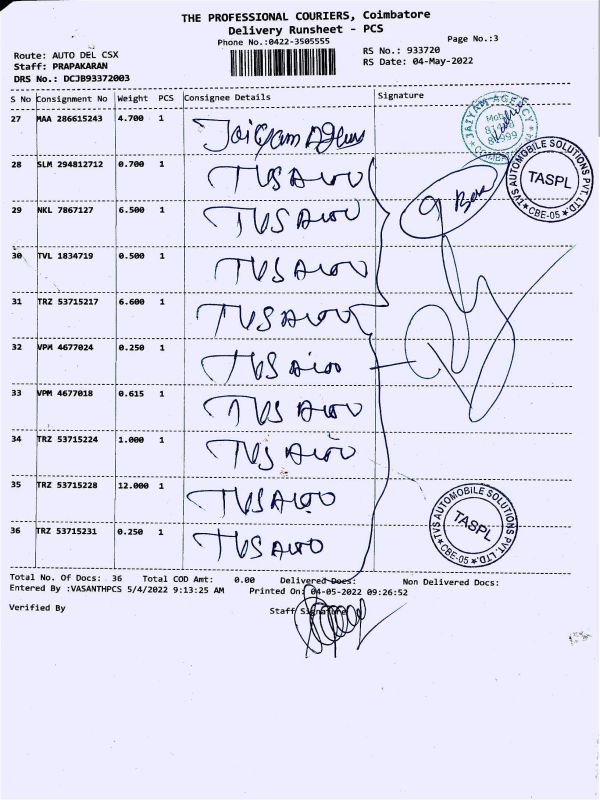 THE PROFESSIONAL COURIERS, Coimbatore
Delivery Runsheet - PCS
Phone No.:0422-3505555
Page No.:3
Route: AUTO DEL CSX
Staff: PRAPAKARAN
DRS No.: DCJB93372003
RS No.: 933720
RS Date: 04-May-2022
S No Consignment No Weight PCS Consignee Details Signature
27 MAA 286615243 4.700 1
28 SLM 294812712 0.700 1 TVS Auto
29 NKL 7867127 6.500 1 TVS Auto
30 TVL 1834719 0.500 1 TVS Auto
31 TRZ 53715217 6.600 1 TVS Auto
32 VPM 4677024 0.250 1 TVS Auto
33 VPM 4677018 0.615 1 TVS Auto
34 TRZ 53715224 1.000 1 TVS Auto
35 TRZ 53715228 12.000 1 TVS Auto
36 TRZ 53715231 0.250 1 TVS Auto
9 Box
JAIYAM AGENCY
TVS AUTOMOBILE SOLUTIONS PVT. LTD.
TASPL
CBE-05
TVS AUTOMOBILE SOLUTIONS PVT. LTD.
TASPL
CBE-05
Total No. Of Docs: 36 Total COD Amt: 0.00 Delivered Docs: Non Delivered Docs:
Entered By :VASANTHPCS 5/4/2022 9:13:25 AM Printed On: 04-05-2022 09:26:52
Verified By Staff Signature